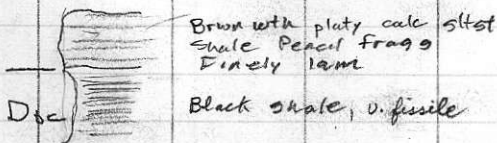 Brwn with platy calc sltst
Shale Pencil frags
Finely lam
Dbc Black shale, v. fissile